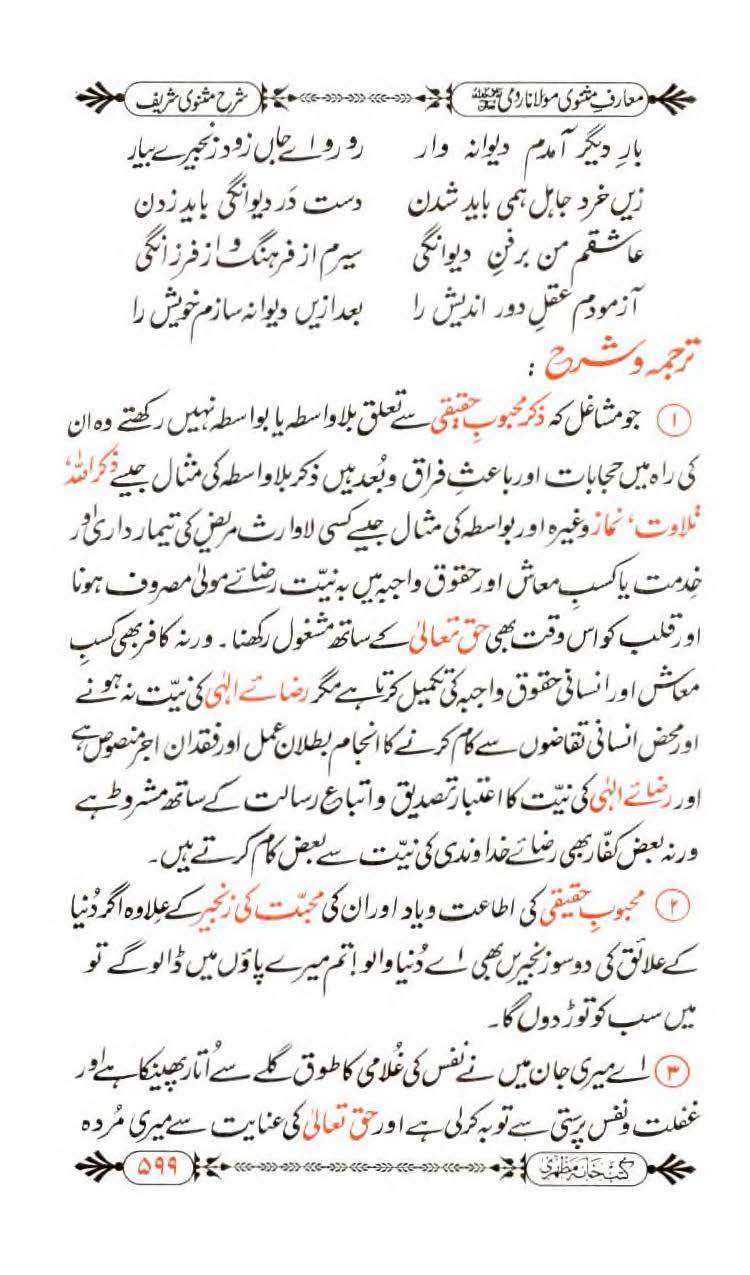 معارفِ مثنوی مولانا رومی شرح مثنوی شریف
بارِ دیگر آمدم دیوانہ وار رو رو اے جاں زود زنجیرے بیار
زیں خرد جاہل ہمی باید شدن دست دَر دیوانگی باید زدن
عاشقم من بر فنِ دیوانگی سیرم از فرہنگ و از فرزانگی
آزمودم عقلِ دور اندیش را بعد ازیں دیوانہ سازم خویش را
ترجمہ و شرح :
۱ جو مشاغل کہ ذکرِ محبوبِ حقیقی سے تعلق بلا واسطہ یا بواسطہ نہیں رکھتے وہ ان
کی راہ میں حجابات اور باعثِ فراق و بُعد ہیں ذکر بلا واسطہ کی مثال جیسے ذکر اللہ،
تلاوت، نماز وغیرہ اور بواسطہ کی مثال جیسے کسی لاوارث مریض کی تیمارداری اور
خدمت یا کسبِ معاش اور حقوق واجبہ میں بہ نیّت رضائے مولیٰ مصروف ہونا
اور قلب کو اس وقت بھی حق تعالیٰ کے ساتھ مشغول رکھنا۔ ورنہ کافر بھی کسبِ
معاش اور انسانی حقوق واجبہ کی تکمیل کرتا ہے مگر رضائے الٰہی کی نیّت نہ ہونے
اور محض انسانی تقاضوں سے کام کرنے کا انجام بطلانِ عمل اور فقدان اجر منصوص ہے
اور رضائے الٰہی کی نیّت کا اعتبار تصدیق و اتباعِ رسالت کے ساتھ مشروط ہے
ورنہ بعض کفّار بھی رضائے خداوندی کی نیّت سے بعض کام کرتے ہیں۔
۲ محبوبِ حقیقی کی اطاعت و یاد اور ان کی محبّت کی زنجیر کے علاوہ اگر دُنیا
کے علائق کی دو سو زنجیریں بھی اے دُنیا والو! تم میرے پاؤں میں ڈالو گے تو
میں سب کو توڑ دوں گا۔
۳ اے میری جان میں نے نفس کی غُلامی کا طوق گلے سے اُتار پھینکا ہے اور
غفلت و نفس پرستی سے توبہ کر لی ہے اور حق تعالیٰ کی عنایت سے میری مُردہ
کتب خانہ مظہری ۵۹۹